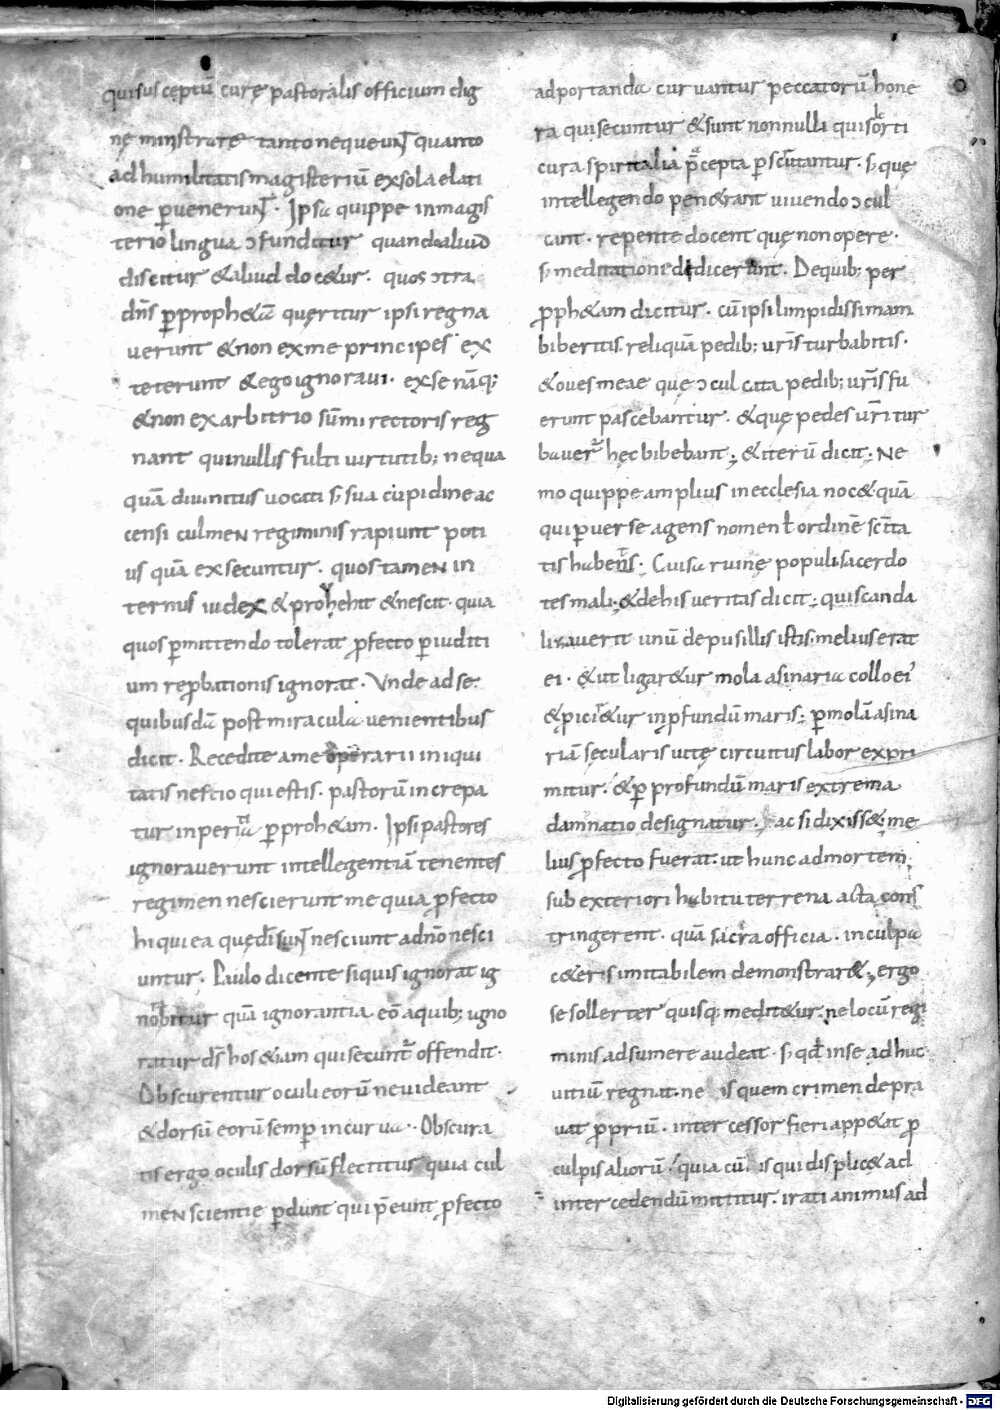 quisusceptū curę pastoralis officium dig
nę ministrare tanto nequeunt quanto
ad humilitatis magisteriū ex sola elati
one ꝑvenerunt. Ipsa quippe in magis
terio lingua ↄfunditur quando aliud
discitur & aliud doc&ur. quos ↄtra
dn̄s ꝑ proph&ā queritur ipsi regna
verunt & non ex me principes ex
teterunt & ego ignoravi. ex se nāq;
& non ex arbitrio sūmi rectoris reg
nant qui nullis fulti virtutib; nequa
quā divinitus vocati s; sua cupidine ac
censi culmen regiminis rapiunt poti
us quā exsecuntur. quos tamen in
ternus iudex & provehit & nescit. quia
quos ꝑmittendo tolerat ꝓfecto ꝑ iuditi
um reꝓbationis ignorat. Unde ad se
quibusdā post miracula venientibus
dicit. Recedite a me operarii iniqui
tatis nescio qui estis. pastorū increpa
tur inperitia ꝑ proh&am. Ipsi pastores
ignoraverunt intellegentiā tenentes
regimen nescierunt me quia ꝓfecto
hi qui ea quę dī sunt nesciunt a dn̄o nesci
untur. Paulo dicente siquis ignorat ig
norabitur quā ignorantia eō a quib; igno
ratur ds̄ hos &iam qui secuntur offendit.
Obscurentur oculi eorū ne videant
& dorsū eorū semꝑ incurva. Obscura
tis ergo oculis dorsū flectitur quia cul
men scientie ꝑdunt qui p̄eunt ꝓfecto
ad portanda curvantur peccatorū hone
ra qui secuntur & sunt nonnulli qui solerti
cura spiritalia pracepta ꝑscrutantur. s; quę
intellegendo pen&rant vivendo ↄcul
cant. repente docent quę non opere.
s; meditatione didicerunt. De quib; per
ꝓph&am dicitur. cū ipsi limpidissimam
biberitis reliquā pedib; vr̄is turbabitis.
& oves meae quę ↄculcata pedib; vr̄is fu
erunt pascebantur. & quę pedes vr̄i tur
baverant hęc bibebant; & iterū dicit. Ne
mo quippe amplius in ecclesia noc& quā
qui ꝑverse agens nomen ł ordinē sc̄ita
tis habens. Cuisa ruinę populi sacerdo
tes mali. & de his veritas dicit; qui scanda
lizaverit unū de pusillis istis. melius erat
ei. & ut ligar&ur mola asinaria collo ei'
& ꝓici&ur in ꝓfundū maris; ꝑ molā asina
riā sęcularis vitę circuitus labor expri
mitur. & ꝑ profundū maris extrema
damnatio designatur. ac si dixiss& me
lius ꝓfecto fuerat. ut hunc ad mortem.
sub exteriori habitu terrena acta cons
tringerent. quā sacra officia. in culpa
c&eris imitabilem demonstrar&. ergo
se sollerter quisq; medit&ur. ne locū regi
minis adsumere audeat. s; qd̄ in se adhuc
vitiū regnat. ne is quem crimen depra
vat ꝓpriū. intercessor fieri app&at ꝓ
culpis aliorū. quia cū is qui displic& ad
intercedendū mittitur. irati animus ad
Digitalisierung gefördert durch die Deutsche Forschungsgemeinschaft - DFG